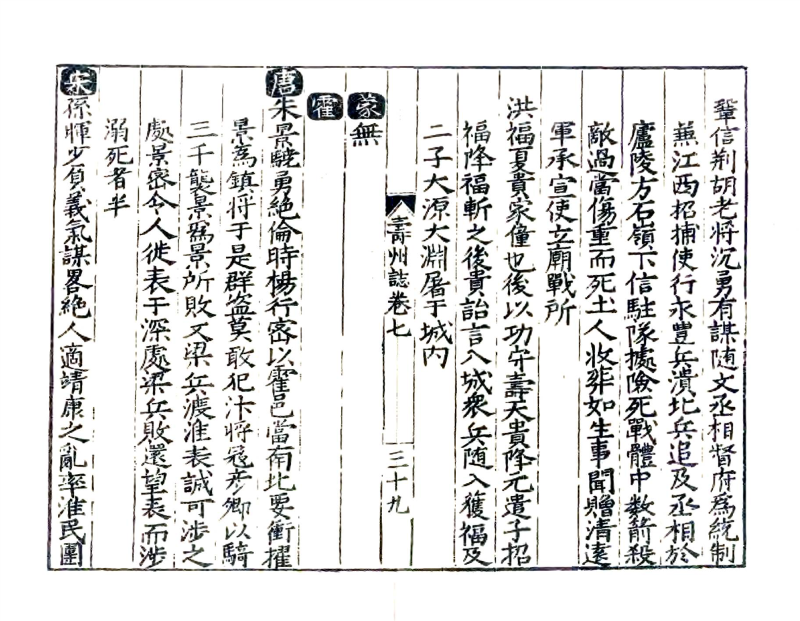 鞏信荆胡老将沉勇有謀随文丞相督府爲統制
蕪江西招捕使行永豊兵潰北兵追及丞相於
廬陵方石嶺下信駐隊據險死戰體中数箭殺
敵過當傷重而死土人收葬如生事聞贈清遠
軍承宣使立廟戰所
洪福夏貴家僮也後以功守壽夭貴降元遣子招
福降福斬之後貴詒言入城衆兵随入獲福及
二子大源大淵屠于城内
壽州誌卷七
三十九
蒙無
霍
唐朱景驍勇絶倫時楊行宻以霍邑當南北要衝擢
景爲鎮将于是群盗莫敢犯汴将冦彦卿以騎
三千襲景爲景所敗又梁兵渡淮表誠可渉之
處景宻令人徙表于深處梁兵敗還望表而渉
溺死者半
宋孫暉少負義氣謀畧絶人適靖康之亂率淮民團